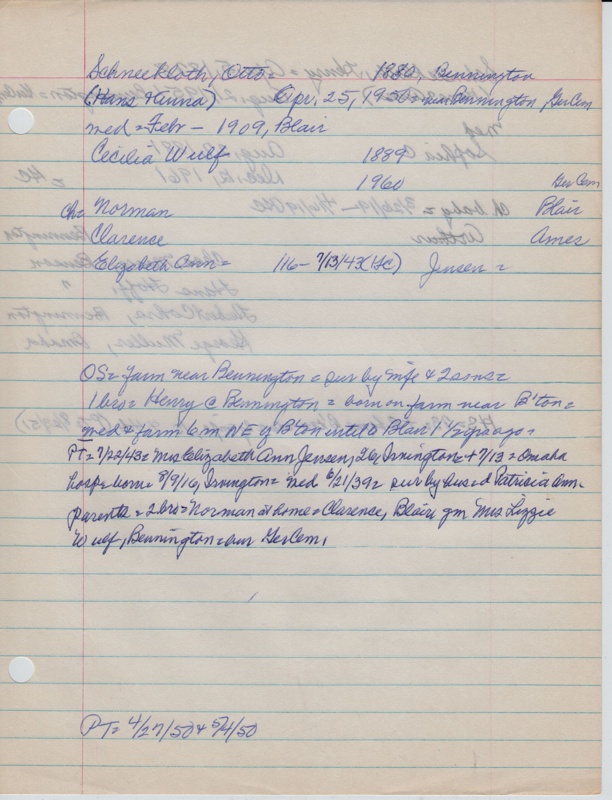 Schneekloth, Otto = 1880, Bennington
(Hans & Anna) Apr. 25, 1950 = near Bennington GerCem
med = Febr - 1909, Blair
Cecilia Wulf 1889
1960 GerCem
Ch = Norman Blair
Clarence Ames
Elizabeth Ann = 116 - 7/13/43 (HC) Jensen =
OS = farm near Bennington = sur by wife & 2 sons =
1 bro = Henry @ Bennington = born on farm near B'ton =
med & farm 6 m NE of B'ton until to Blair 1 1/2 yrs ago =
PT = 7/22/43 = Mrs Elizabeth Ann Jensen, 26, Irvington = + 7/13 = Omaha
hosp = born = 8/9/16, Irvington = med 6/21/39 = sur by hus = d Patricia Ann =
parents = 2 bro = Norman at home = Clarence, Blair, gm Mrs Lizzie
Wulf, Bennington = bur GerCem,
PT = 4/27/50 & 5/4/50